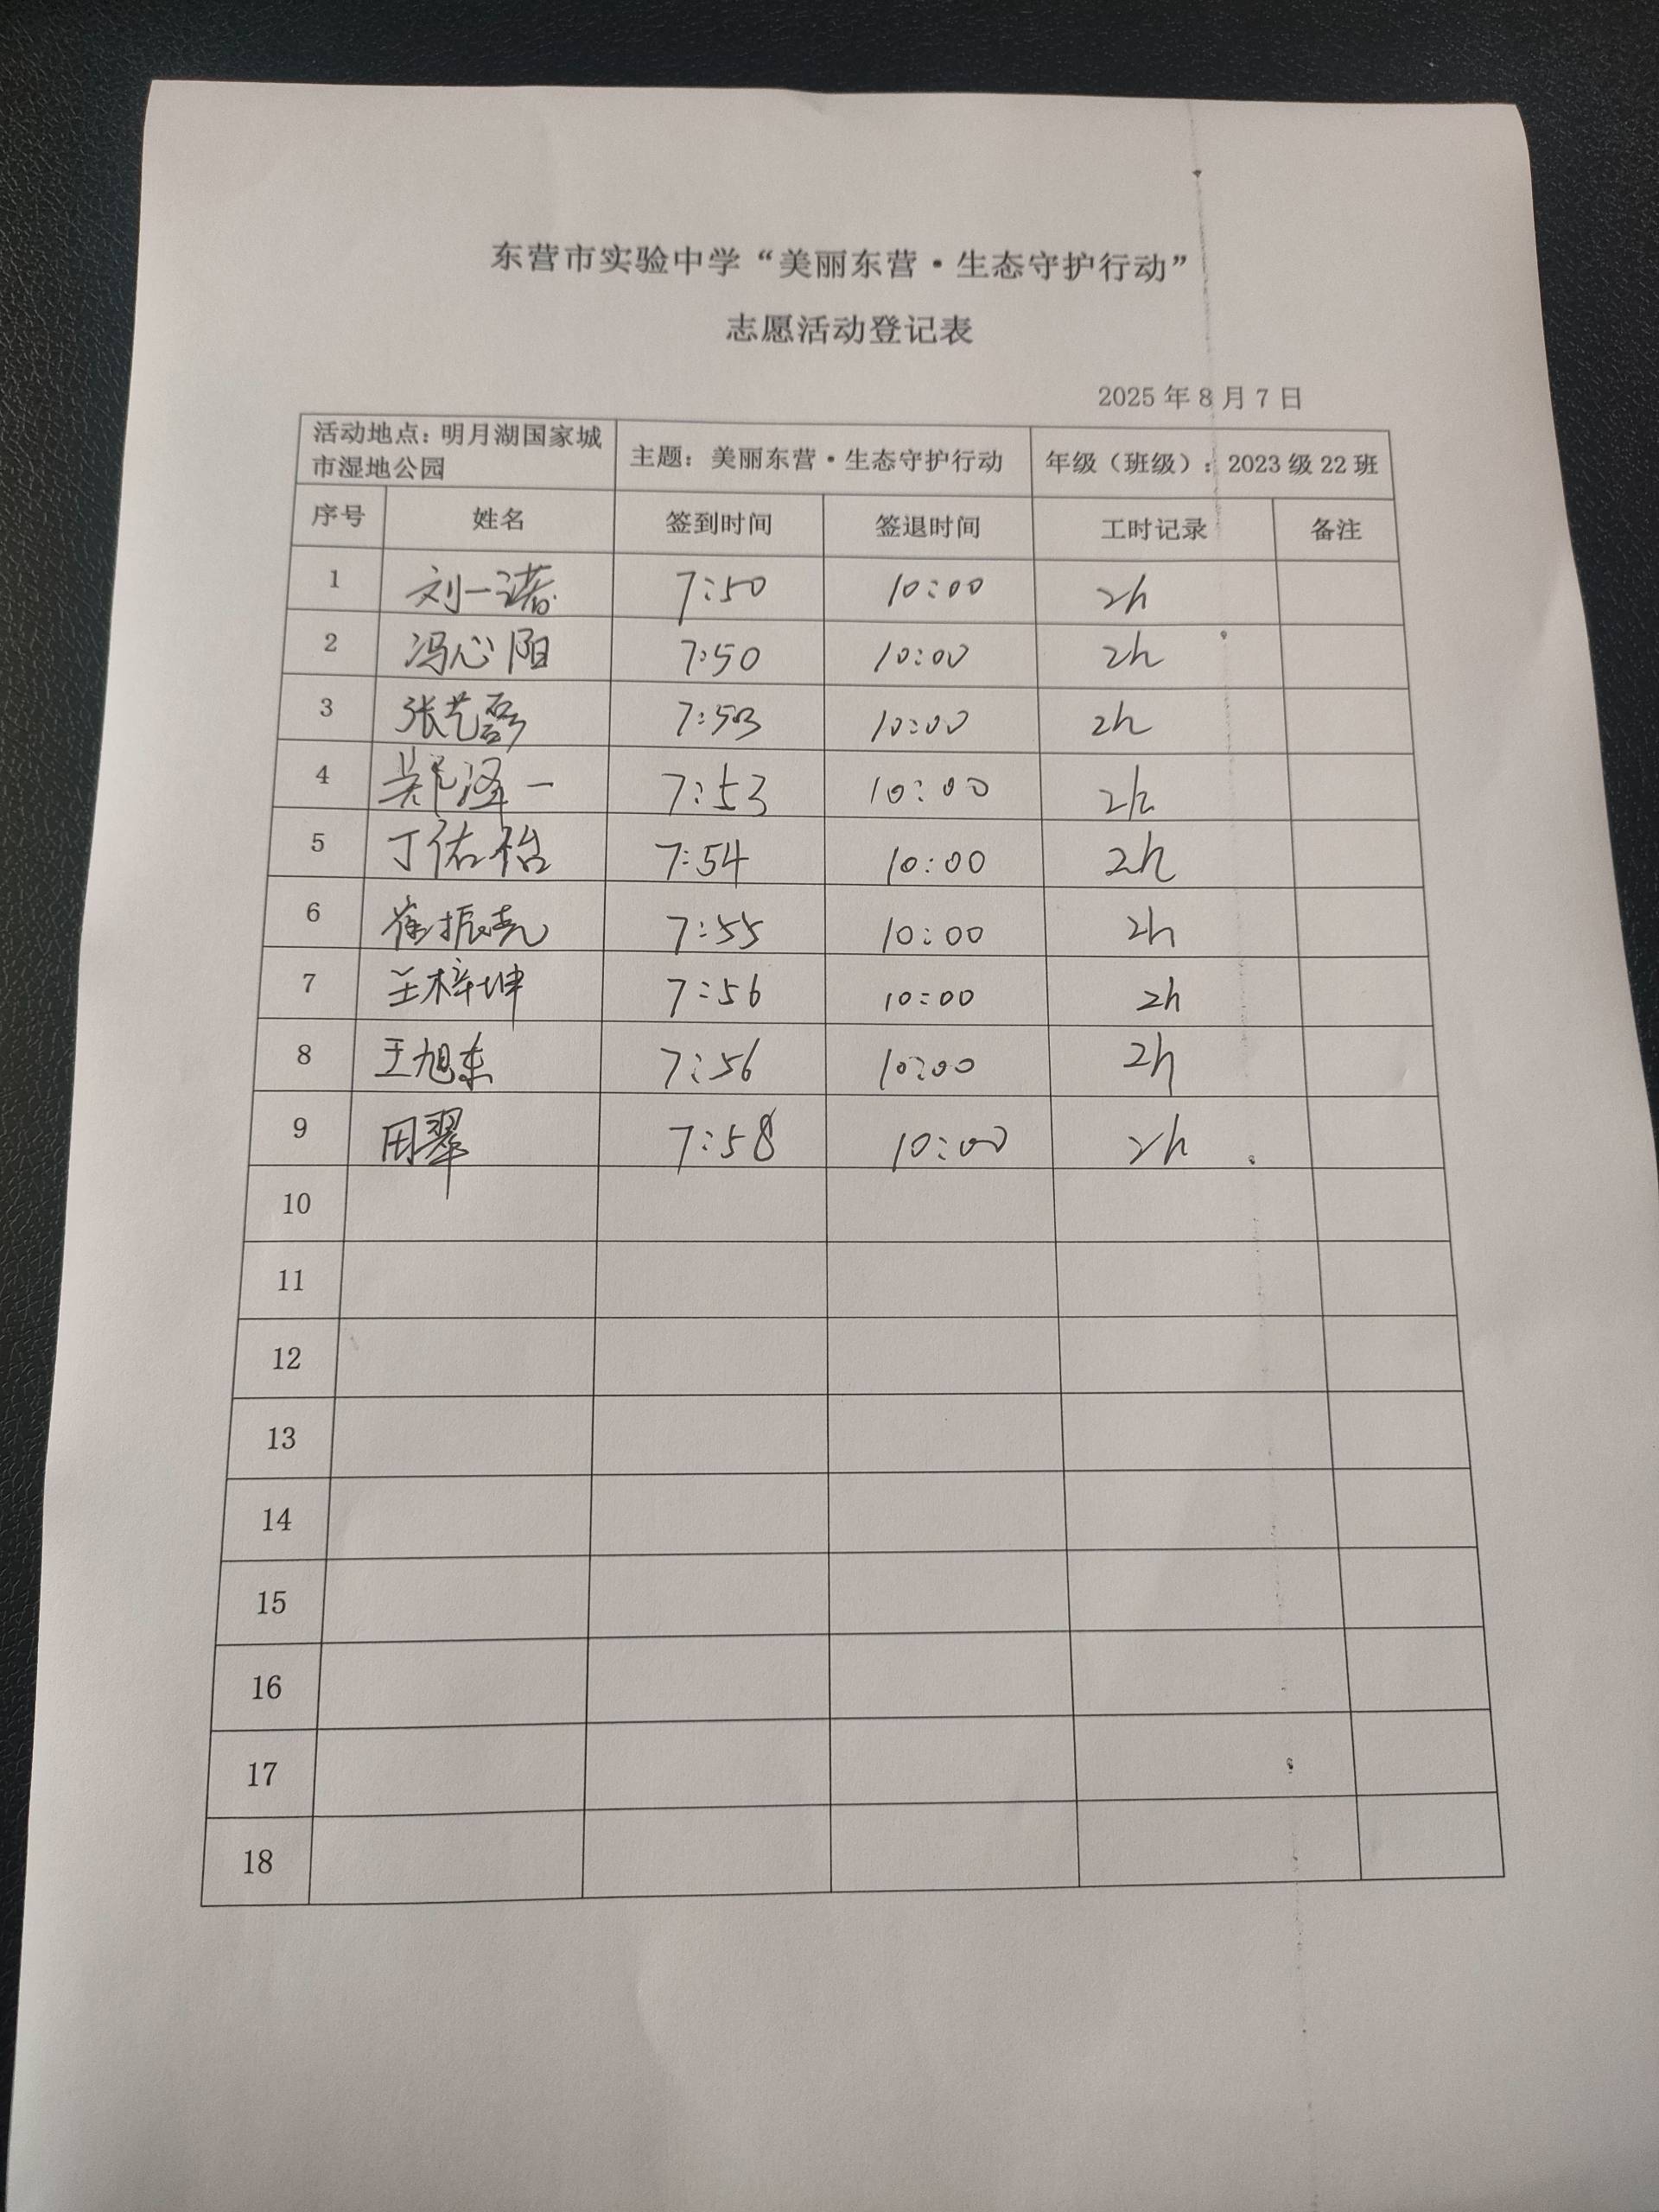 东营市实验中学“美丽东营·生态守护行动”
志愿活动登记表
2025 年 8 月 7 日
活动地点：明月湖国家城市湿地公园 主题：美丽东营·生态守护行动 年级（班级）：2023 级 22 班
序号 姓名 签到时间 签退时间 工时记录 备注
1 刘一诺 7:50 10:00 2h
2 冯心阳 7:50 10:00 2h
3 张艺 7:53 10:00 2h
4 泽一 7:53 10:00 2h
5 丁佑怡 7:54 10:00 2h
6 崔振 7:55 10:00 2h
7 王梓坤 7:56 10:00 2h
8 王旭东 7:56 10:00 2h
9 田翠 7:58 10:00 2h
10
11
12
13
14
15
16
17
18